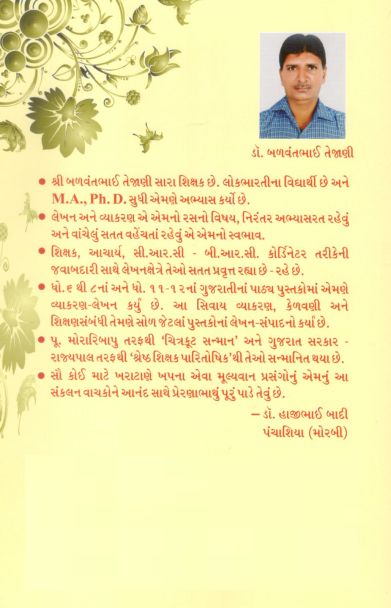 ડૉ. બળવંતભાઈ તેજાણી
● શ્રી બળવંતભાઈ તેજાણી સારા શિક્ષક છે. લોકભારતીના વિદ્યાર્થી છે અને
M.A., Ph. D. સુધી એમણે અભ્યાસ કર્યો છે.
● લેખન અને વ્યાકરણ એ એમનો રસનો વિષય, નિરંતર અભ્યાસરત રહેવું
અને વાંચેલું સતત વહેંચતાં રહેવું એ એમનો સ્વભાવ.
● શિક્ષક, આચાર્ય, સી.આર.સી - બી.આર.સી. કોર્ડિનેટર તરીકેની
જવાબદારી સાથે લેખનક્ષેત્રે તેઓ સતત પ્રવૃત્ત રહ્યા છે - રહે છે.
● ધો. ૬ થી ૮નાં અને ધો. ૧૧-૧૨નાં ગુજરાતીનાં પાઠ્ય પુસ્તકોમાં એમણે
વ્યાકરણ-લેખન કર્યું છે. આ સિવાય વ્યાકરણ, કેળવણી અને
શિક્ષણસંબંધી તેમણે સોળ જેટલાં પુસ્તકોનાં લેખન-સંપાદનો કર્યાં છે.
● પૂ. મોરારિબાપુ તરફથી 'ચિત્રકૂટ સન્માન' અને ગુજરાત સરકાર -
રાજ્યપાલ તરફથી 'શ્રેષ્ઠ શિક્ષક પારિતોષિક'થી તેઓ સન્માનિત થયા છે.
● સૌ કોઈ માટે ખરાટાણે ખપના એવા મૂલ્યવાન પ્રસંગોનું એમનું આ
સંકલન વાચકોને આનંદ સાથે પ્રેરણાભાથું પૂરું પાડે તેવું છે.
– ડૉ. હાજીભાઈ બાદી
પંચાશિયા (મોરબી)